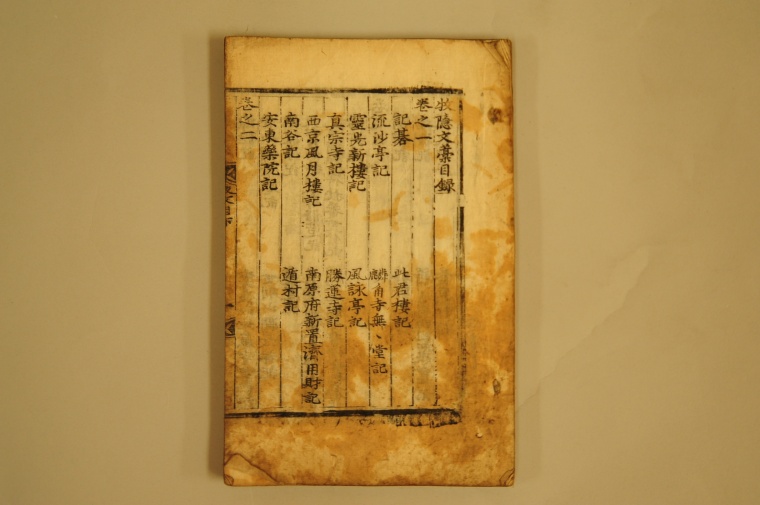 牧隐文藁目録
卷之一
記碁 此君樓記
流沙亭記 麟角寺無、堂記
靈光新樓記 風詠亭記
真宗寺記 勝蓮寺記
西京風月樓記 南原府新置濟用財記
南谷記 遁村記
安東藥院記
卷之二